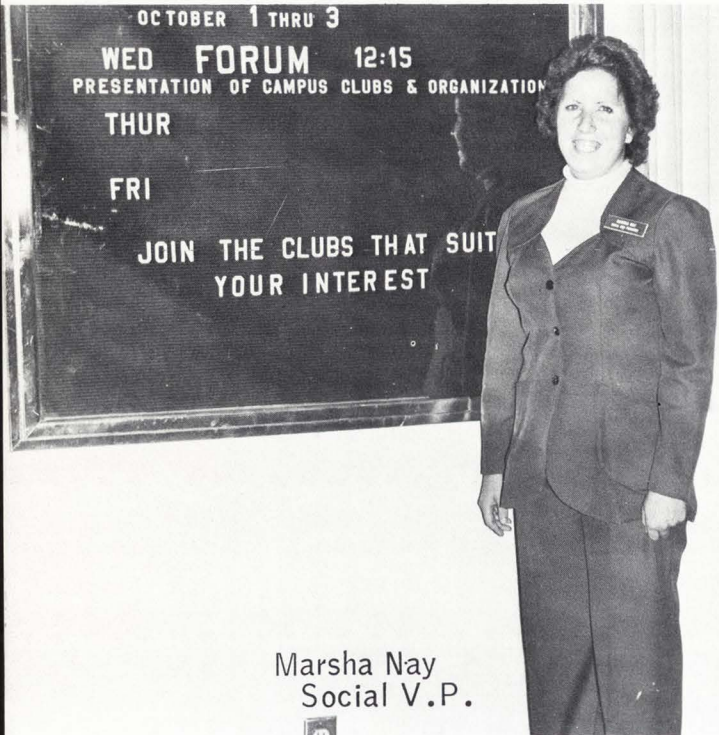 OCTOBER 1 THRU 3
WED FORUM 12:15
PRESENTATION OF CAMPUS CLUBS & ORGANIZATION
THUR
FRI
JOIN THE CLUBS THAT SUIT
YOUR INTEREST
MARSHA NAY
Marsha Nay
Social V.P.